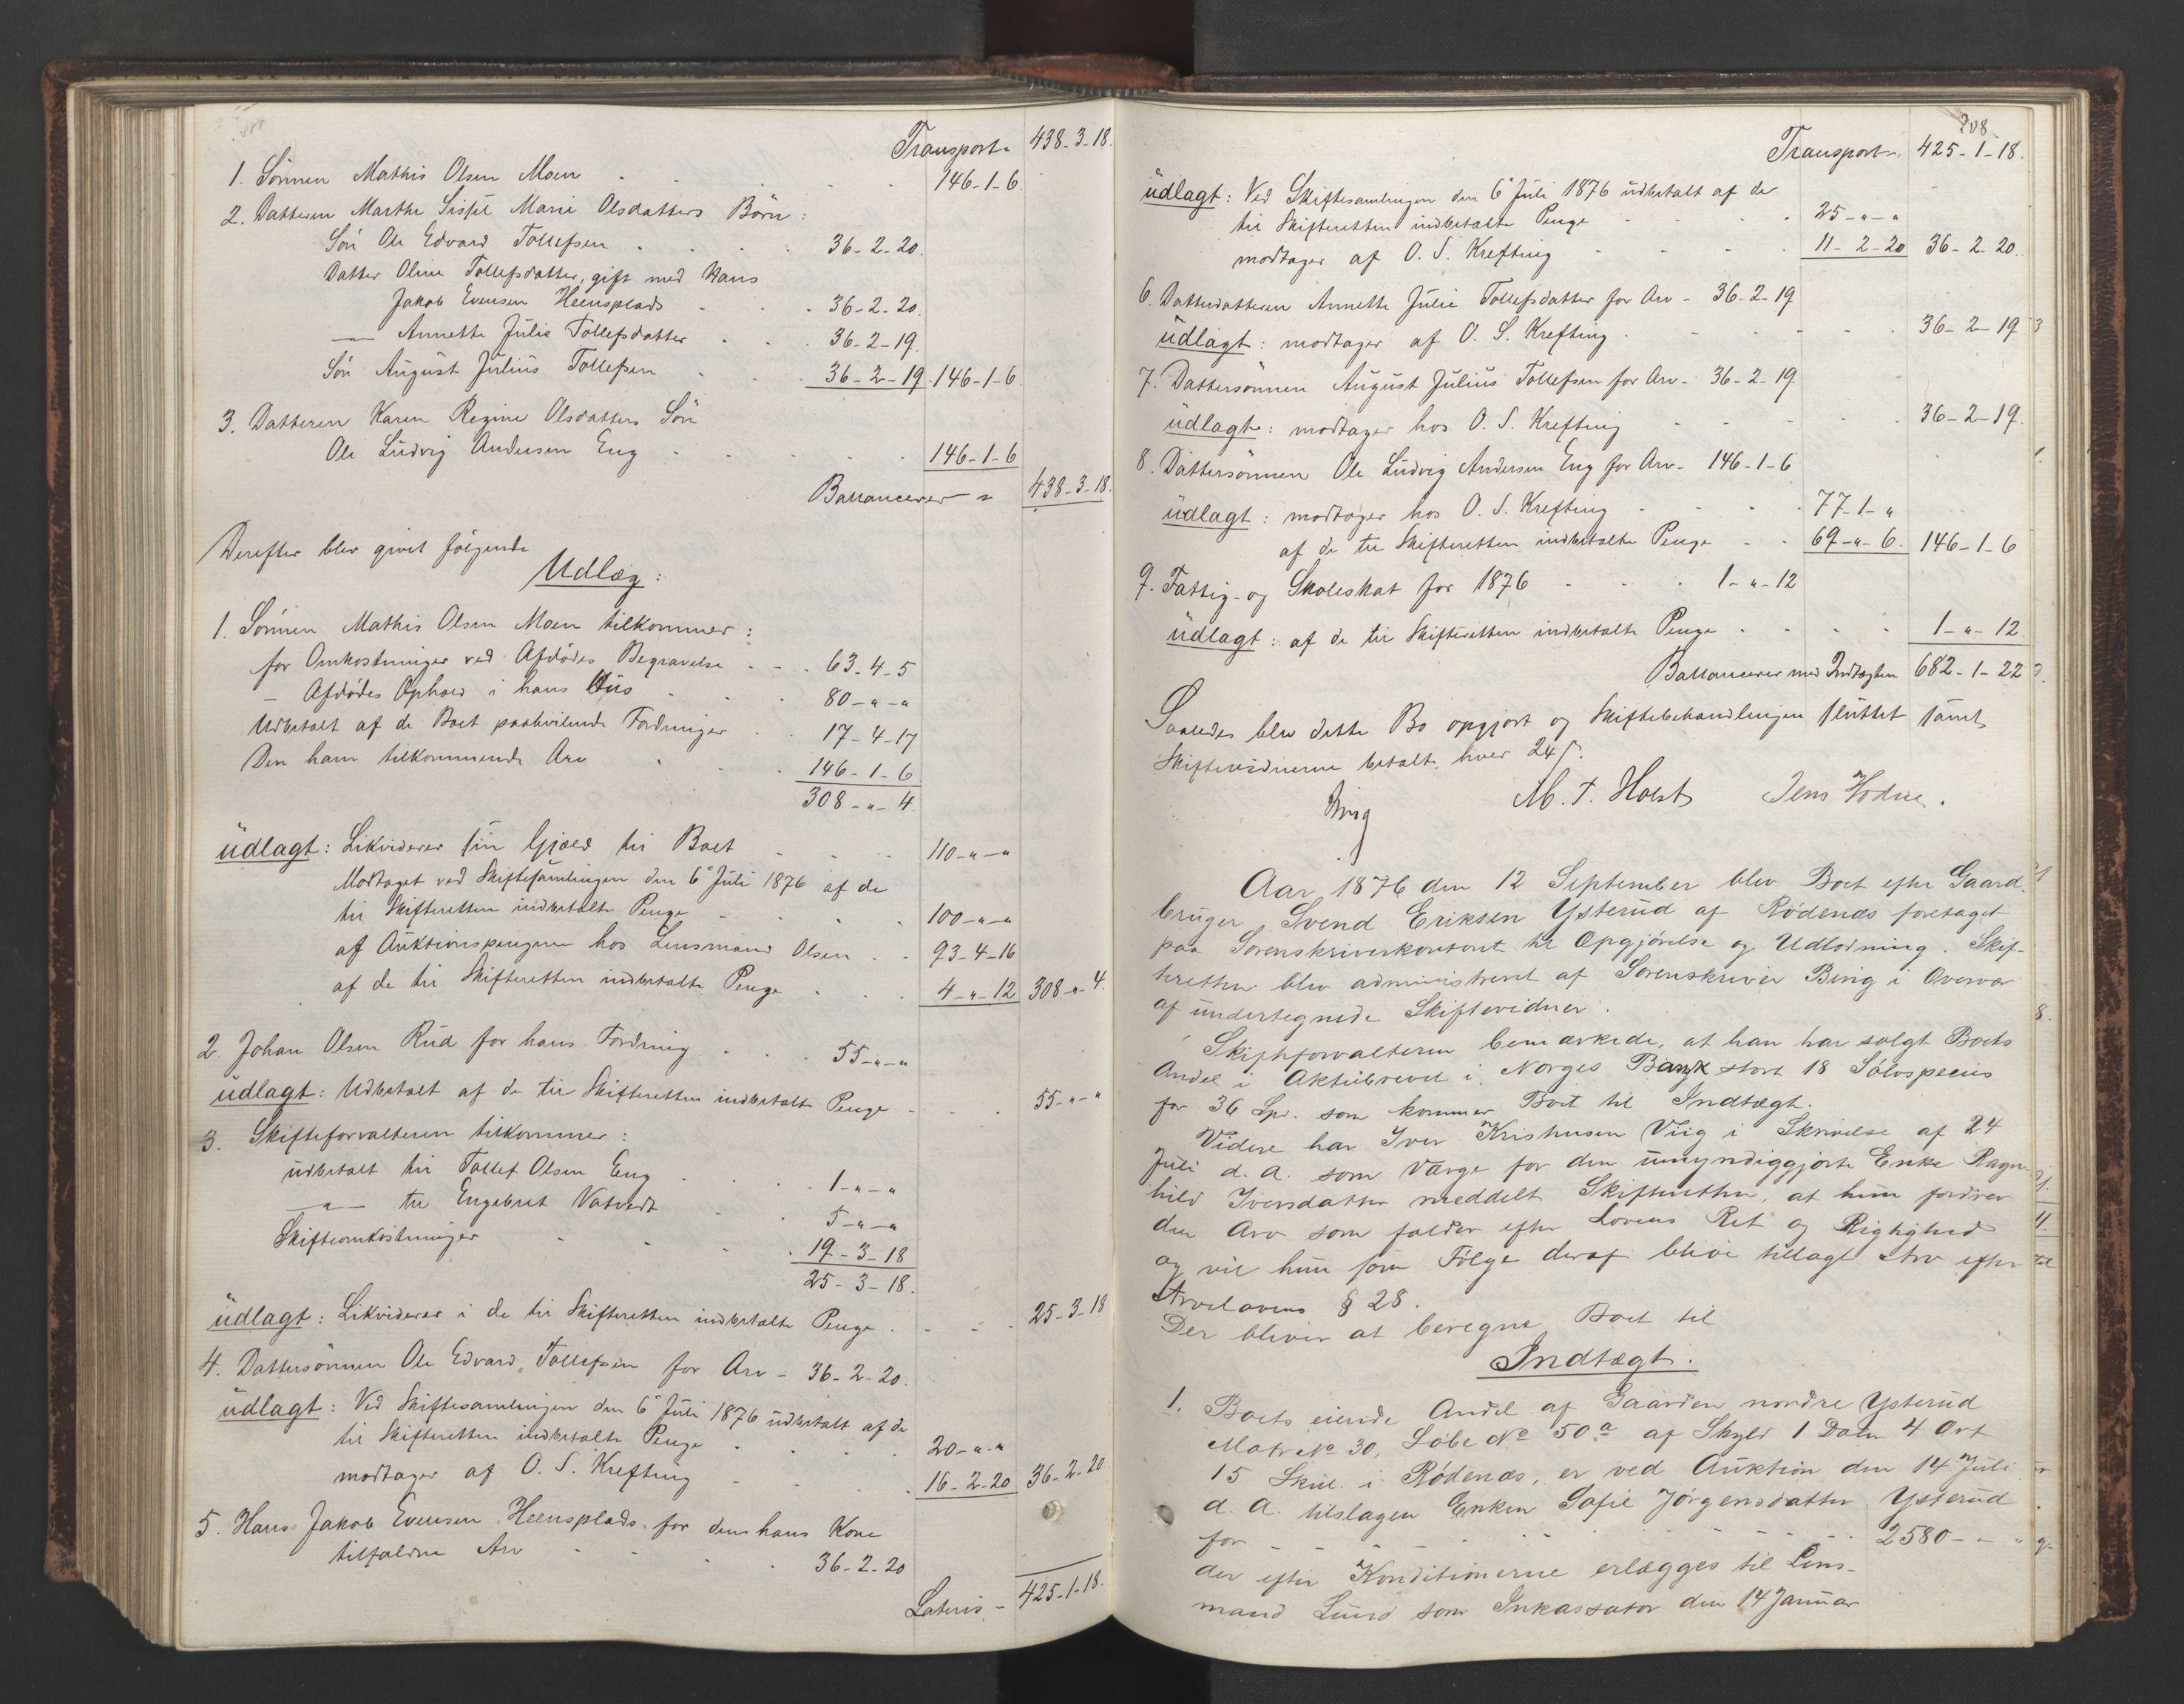 Transport 438-3-18.
1. Sönnen Mathis Olsen Moen . . . 146-1-6.
2. Datteren Marthe Sissel Marie Olsdatters Börn:
Sön Ole Edvard Tollefsen . . . 36-2-20.
Datter Oline Tollefsdatter, gift med Hans
Jakob Evensen Heensplads . . . 36-2-20.
— Annette Julie Tollefsdatter . . . 36-2-19.
Sön August Julius Tollefsen . . . 36-2-19. 146-1-6
3. Datteren Karen Regine Olsdatters Sön
Ole Ludvig Andersen Eng . . . 146-1-6
Ballancerer 438-3-18.
Derefter blev givet fölgende
Udlæg:
1. Sönnen Mathis Olsen Moen tilkommer:
for Omkostninger ved Afdödes Begravelse . . . 63-4-5
— Afdödes Ophold i hans Hus . . . 80-"-"
Udbetalt af de Boet paahvilende Fordringer . . 17-4-17
Den ham tilkommende Arv . . . 146-1-6
308-"-4.
üdlagt: Likviderer sin Gjæld til Boet . . . 110-"-"
Modtaget ved Skiftesamlingen den 6te Juli 1876 af de
til Skifteretten indbetalte Penge . . . 100-"-"
af Auktionspengene hos Lensmand Olsen . . 93-4-16
af de til Skifteretten indbetalte Penge . . . 4-"-12 308-"-4.
2. Johan Olsen Rud for hans Fordring . . . 55-"-"
üdlagt: Udbetalt af de til Skifteretten indbetalte Penge . . . 55-"-"
3. Skifteforvalteren tilkommer:
udbetalt til Tollef Olsen Eng . . . 1-"-"
—"— til Engebret Vatvedt . . . 5-"-"
Skifteomkostninger . . . 19-3-18
25-3-18.
üdlagt: Likviderer i de til Skifteretten indbetalte Penge . . . 25-3-18
4. Dattersönnen Ole Edvard Tollefsen for Arv - 36-2-20.
üdlagt: Ved Skiftesamlingen den 6te Juli 1876 udbetalt af de
til Skifteretten indbetalte Penge . . . 20-"-"
modtager af O. S. Krefting . . . 16-2-20 36-2-20
5. Hans Jakob Evensen Heensplads for den hans Kone
tilfaldne Arv . . . 36-2-20
Lateris - 425-1-18.
208
Transport 425-1-18.
üdlagt: Ved Skiftesamlingen den 6te Juli 1876 udbetalt af de
til Skifteretten indbetalte Penge . . . 25-"-"
modtager af O. S. Krefting . . . 11-2-20 36-2-20.
6. Datterdatteren Annette Julie Tollefsdatter for Arv - 36-2-19
üdlagt: modtager af O. S. Krefting . . . 36-2-19
7. Dattersönnen August Julius Tollefsen for Arv - 36-2-19
üdlagt: modtager hos O. S. Krefting . . . 36-2-19.
8. Dattersönnen Ole Ludvig Andersen Eng for Arv - 146-1-6
üdlagt: modtager hos O. S. Krefting . . . 77-1-"
af de til Skifteretten indbetalte Penge . . 69-"-6. 146-1-6
9. Fattig- og Skoleskat for 1876 . . . 1-"-12
üdlagt: af de til Skifteretten indbetalte Penge . . . 1-"-12
Ballancerer med Indtægten 682-1-22
Saaledes blev dette Bo opgjort og Skiftebehandlingen sluttet samt
Skiftevidnerne betalt hver 24 s.
Bing M. T. Holst Jens Hodne.
Aar 1876 den 12 September blev Boet efter Gaard-
bruger Svend Eriksen Ysterud af Rödenæs foretaget
paa Sorenskriverkontoret til Opgjörelse og Udlodning. Skif-
teretten blev administreret af Sorenskriver Bing i Overvær
af undertegnede Skiftevidner.
Skifteforvalteren bemærkede, at han har solgt Boets
Andel i Aktiebrevet i Norges Bank stort 18 Sölvspecies
for 36 Spd. som kommer Boet til Indtægt.
Videre har Iver Kristiansen Viig i Skrivelse af 24
Juli d. A. som Værge for den umyndiggjorte Enke Ragn-
hild Iversdatter meddelt Skifteretten, at hun fordrer
den Arv som falder efter Lovens Ret og Rigtighed
og vil hun som Fölge deraf blive tillagt Arv efter
Arvelovens § 28.
Der bliver at beregne Boet til
Indtægt.
1. Boets eiende Andel af Gaarden nordre Ysterud
Matr No 30, Löbe No 50a af Skyld 1 Daler 4 Ort
15 Skill. i Rödenæs, er ved Auktion den 14 Juli
d. A. tilslagen Enken Sofie Jörgensdatter Ysterud
for . . . 2580-"-"
der efter Konditionerne erlægges til Lens-
mand Lund som Inkassator den 14 Januar